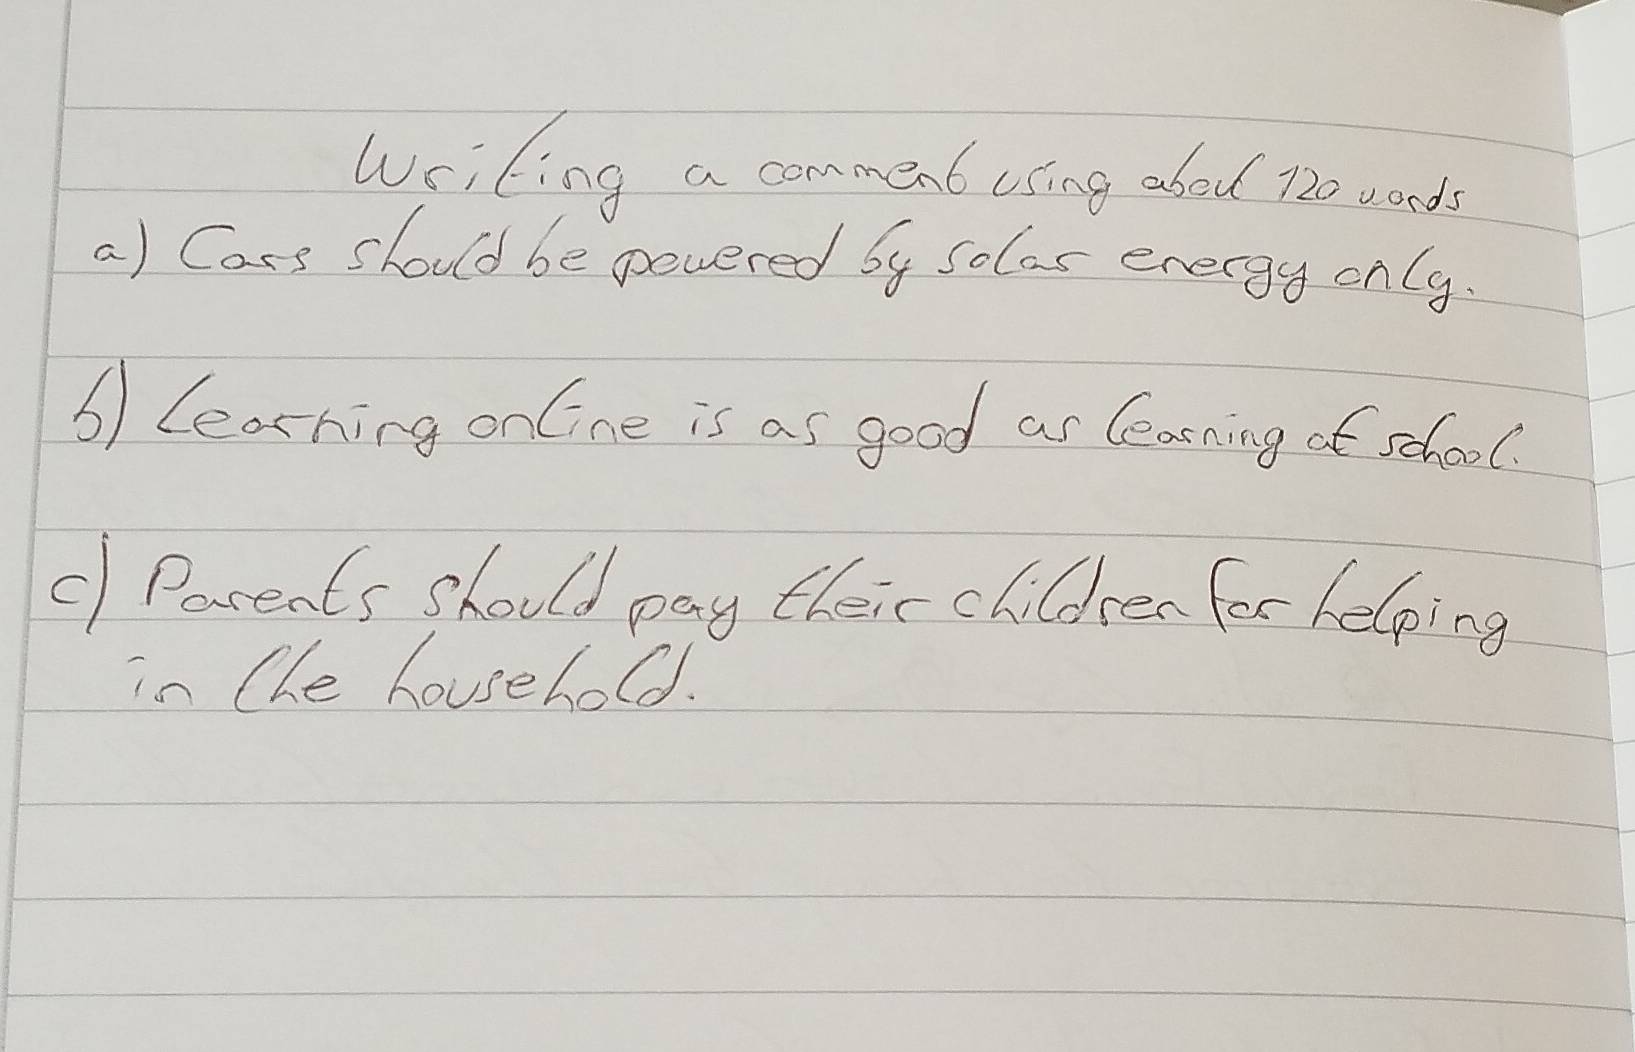 Writing a comment using about 120 words
a) Cars should be powered by solar energy only.
b) Learning online is as good as learning at school.
c) Parents should pay their children for helping
in the household.